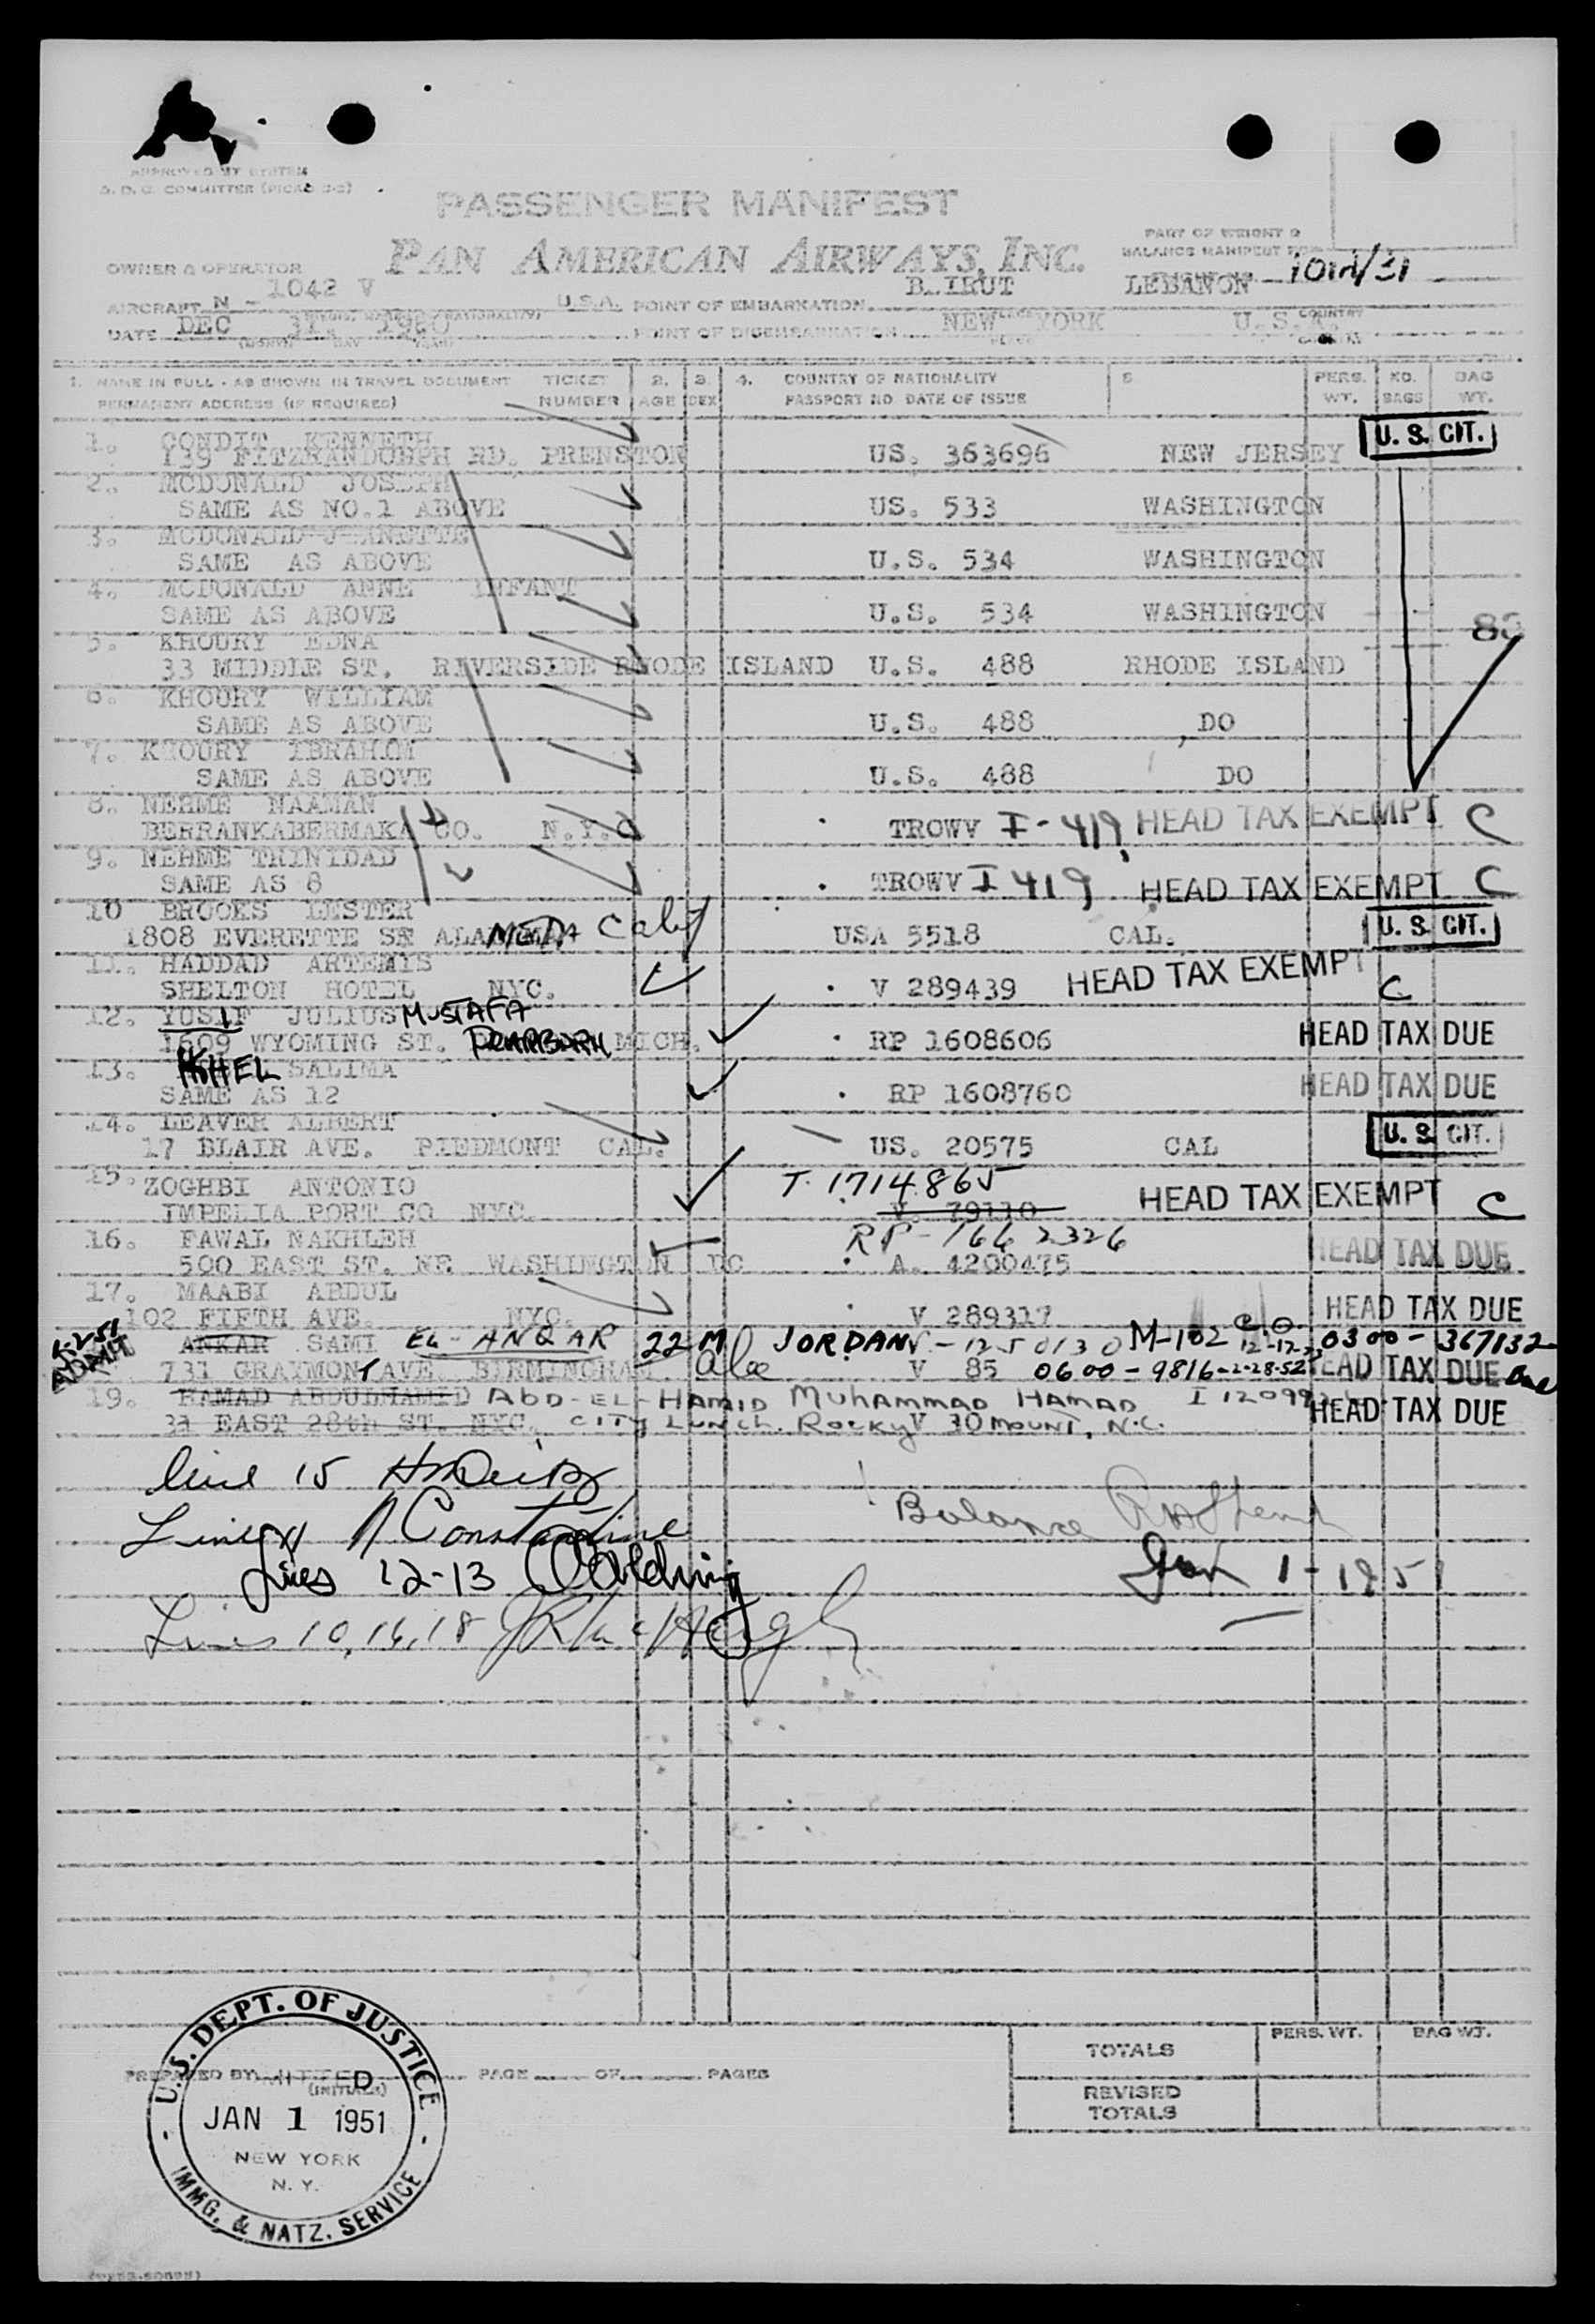 APPROVED BY SYSTEM
PASSENGER MANIFEST
PAN AMERICAN AIRWAYS, INC.
PART OF WEIGHT &
BALANCE MANIFEST FOR
OWNER & OPERATOR
AIRCRAFT N - 1042 V U.S.A. POINT OF EMBARKATION LEBANON
DATE DEC 31, POINT OF DISEMBARKATION NEW YORK U.S.A.
1. NAME IN FULL - AS SHOWN IN TRAVEL DOCUMENT TICKET 2. 3. 4. COUNTRY OF NATIONALITY 5 PERS. NO. BAG
PERMANENT ADDRESS (IF REQUIRED) NUMBER AGE SEX PASSPORT NO DATE OF ISSUE WT. BAGS WT.
1. CONDIT KENNETH U. S. CIT.
139 RD. PRENSTON US. 363696 NEW JERSEY
2. MCDONALD JOSEPH
SAME AS NO.1 ABOVE US. 533 WASHINGTON
3. MCDONALD J ANETTE
SAME AS ABOVE U.S. 534 WASHINGTON
4. MCDONALD ANNE INFANT
SAME AS ABOVE U.S. 534 WASHINGTON
5. KHOURY EDNA
33 MIDDLE ST. RIVERSIDE RHODE ISLAND U.S. 488 RHODE ISLAND
6. KHOURY WILLIAM
SAME AS ABOVE U.S. 488 DO
7. KHOURY IBRAHIM
SAME AS ABOVE U.S. 488 DO
8. NEHME NAAMAN
BERRANKABERMAKA CO. N.Y.C TROWV I-419 HEAD TAX EXEMPT C
9. NEHME TRINIDAD
SAME AS 8 TROWV I 419 HEAD TAX EXEMPT C
10 BROOKS LESTER
1808 EVERETTE ST MEDA Calif USA 5518 CAL. U. S. CIT.
11. HADDAD ARTEMIS
SHELTON HOTEL NYC. V 289439 HEAD TAX EXEMPT C
12. YUSIF JULIUS MUSTAFA
1609 WYOMING ST. DEARBORN MICH. RP 1608606 HEAD TAX DUE
13. SALIMA
SAME AS 12 RP 1608760 HEAD TAX DUE
14. LEAVER ALBERT
17 BLAIR AVE. PIEDMONT CAL. US. 20575 CAL U. S. CIT.
15. ZOGHBI ANTONIO T. 1714865
IMPELIA PORT CO NYC. V. 79110 HEAD TAX EXEMPT C
16. FAWAL NAKHLEH RP-1662326
500 EAST ST. NE WASHINGTON DC A. 4200475 HEAD TAX DUE
17. MAABI ABDUL
102 FIFTH AVE. NYC. V 289317 HEAD TAX DUE
1-2-51 ANKAR SAMI EL-ANQAR 22 M JORDAN V-1250130 M-102 0300-367132
ADMIT 731 GRAYMONT AVE. BIRMINGHAM. Ala V 85 0600-9816-2-28-52 HEAD TAX DUE
19. HAMAD ABDULHAMID ABD-EL-HAMID MUHAMMAD HAMAD
EAST 28th ST. NYC. CITY LUNCH. ROCKY MOUNT, N.C. V 30 HEAD TAX DUE
line 15
Line N Constantine
Lines 12-13
Lines 10, 16, 18
Balance
Jan 1-1951
TOTALS PERS. WT. BAG WT.
PREPARED BY (INITIALS) PAGE OF PAGES
REVISED
TOTALS
U.S. DEPT. OF JUSTICE
ADMITTED
JAN 1 1951
NEW YORK
N. Y.
IMMG. & NATZ. SERVICE